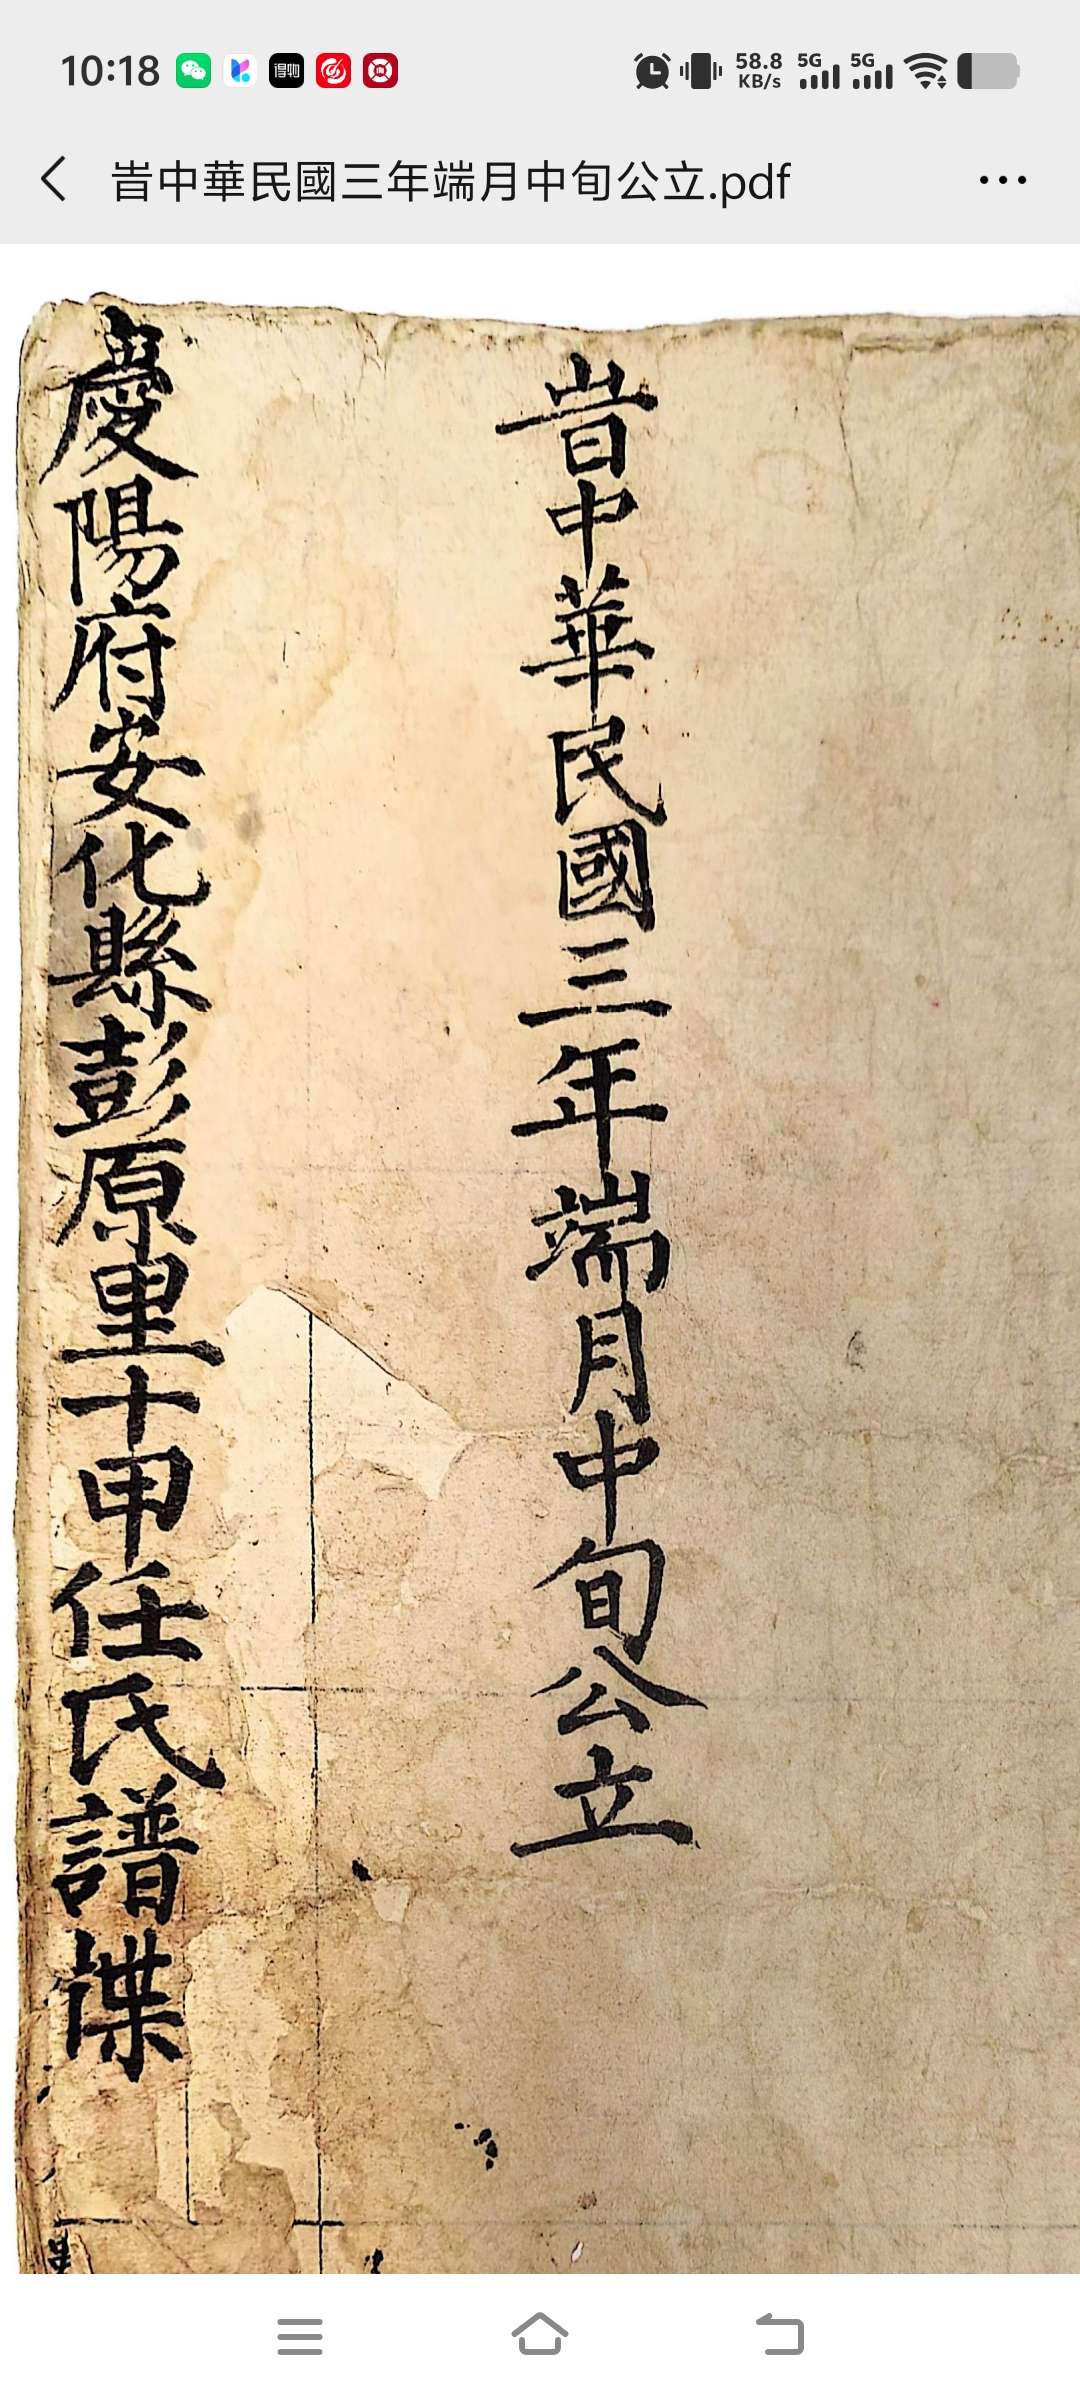 10:18
得物
58.8 KB/s 5G 5G
旹中華民國三年端月中旬公立.pdf
旹中華民國三年端月中旬公立
慶陽府安化縣彭原里十甲任氏譜